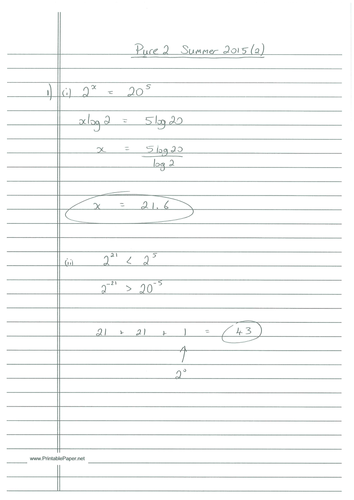 Pure 2 Summer 2015 (2)
1) (i) 2^x = 20^5
xlog2 = 5log20
x = 5log20
log2
x = 21.6
(ii) 2^21 < 2^5
2^-21 > 20^-5
21 + 21 + 1 = 43
2^0
www.PrintablePaper.net